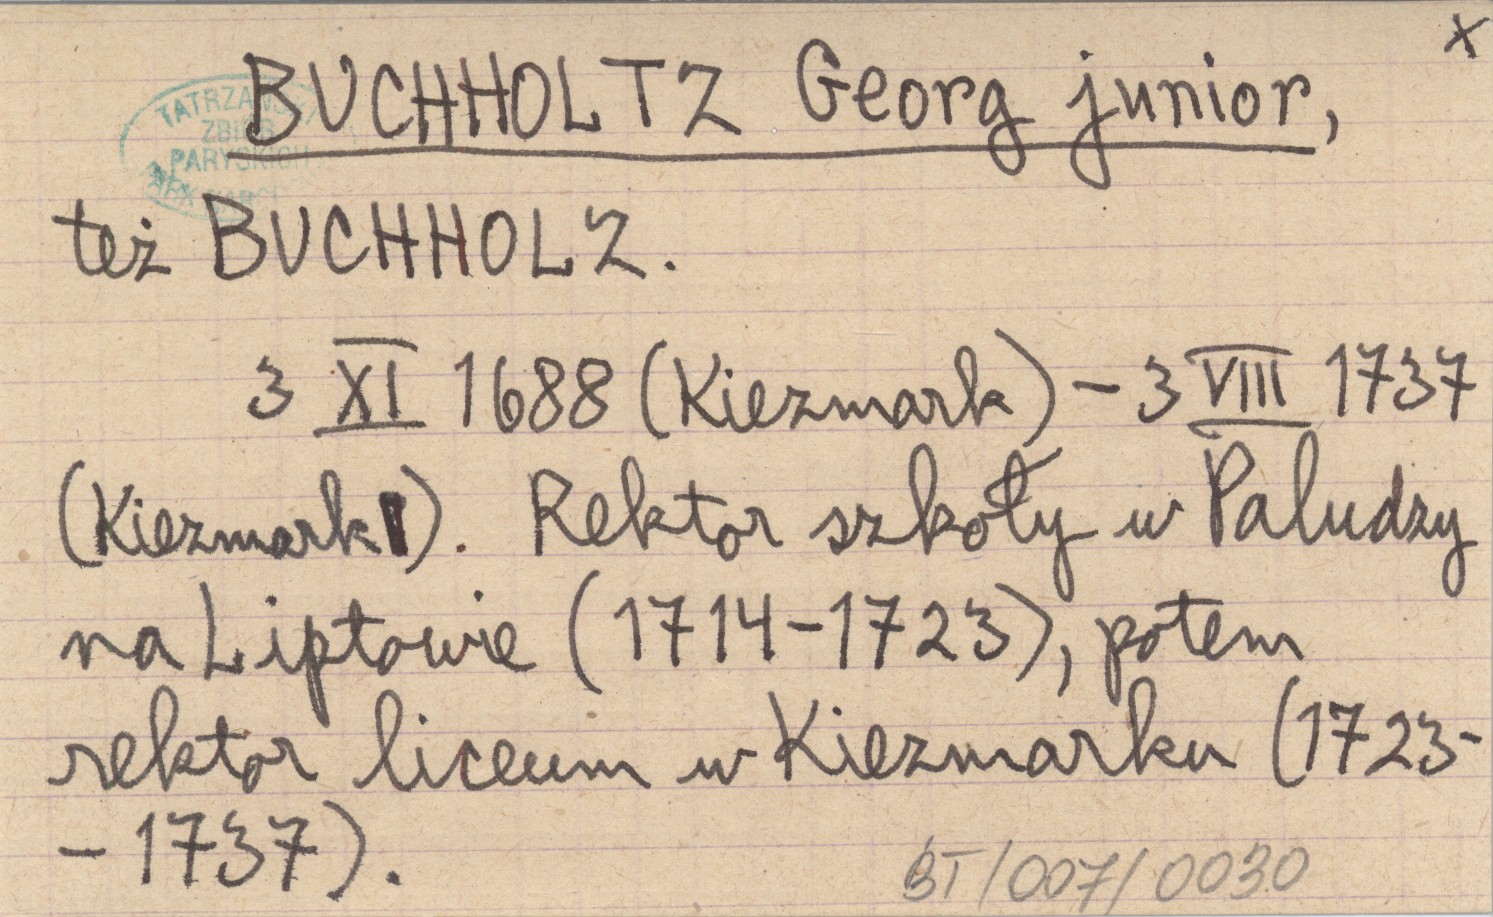 x
BUCHHOLTZ Georg junior,
TATRZAŃSKIE
ZBIORY
PARYSKICH
też BUCHHOLZ.
3 XI 1688 (Kiezmark) - 3 VIII 1737
(Kiezmark). Rektor szkoły w Paludzy
na Liptowie (1714-1723), potem
rektor liceum w Kiezmarku (1723-
- 1737).
BT/007/0030